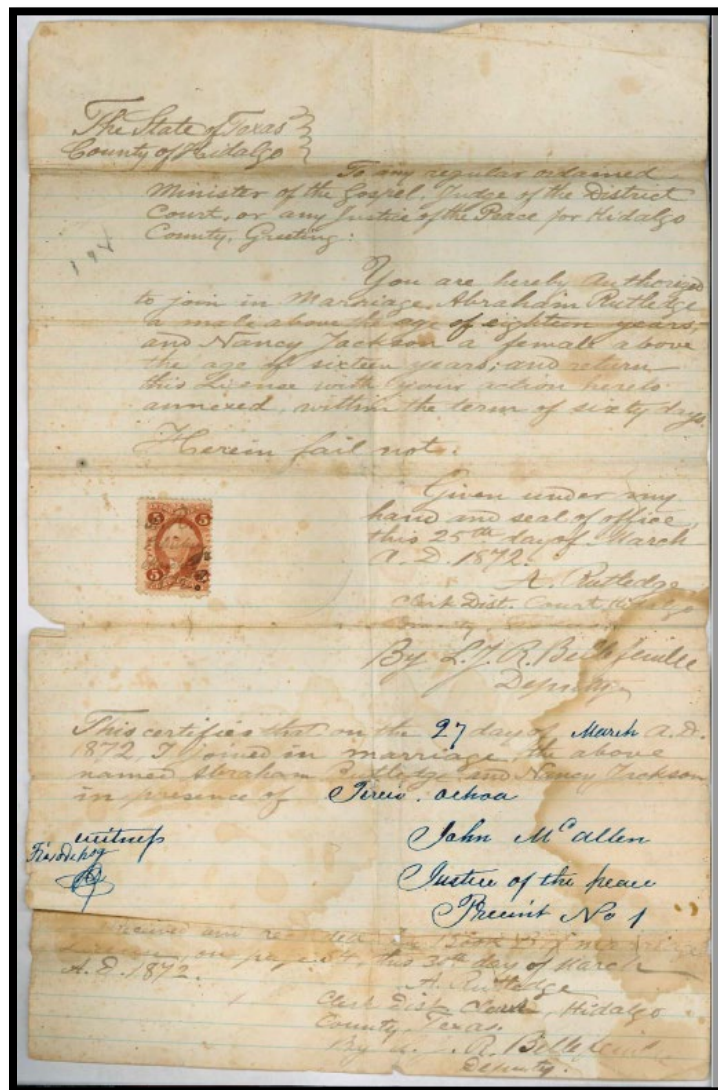 The State of Texas
County of Hidalgo
To any regular ordained
Minister of the Gospel, Judge of the District
Court, or any Justice of the Peace for Hidalgo
County, Greeting:
You are hereby authorized
to join in Marriage Abraham Rutledge
a male above the age of eighteen years,
and Nancy Jackson a female above
the age of sixteen years; and return
this License with your action hereto
annexed, within the term of sixty days.
Herein fail not.
Given under my
hand and seal of office,
this 25th day of March
A.D. 1872.
A. Rutledge
Clerk Dist. Court Hidalgo
5 5
5
By L.J.R.
Deputy
This certifies that on the 27 day of March A.D.
1872, I joined in marriage, the above
named Abraham Rutledge and Nancy Jackson
in presence of ochoa
witness
John McAllen
Justice of the peace
Precint No 1
this 30th day of March
A.D. 1872.
A. Rutledge
Clerk Dist. Court, Hidalgo
County, Texas.
By
Deputy.